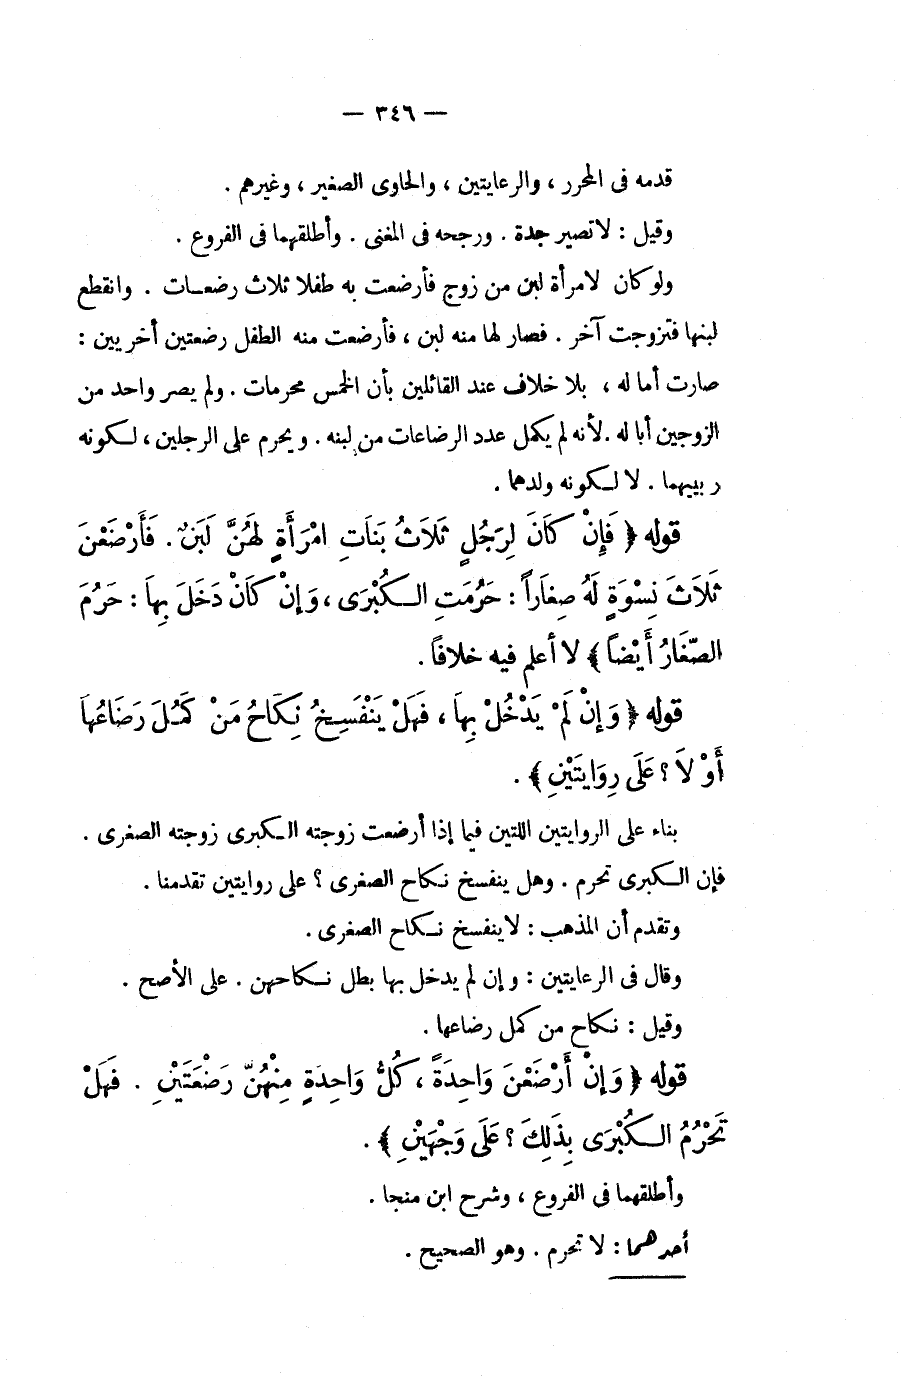 — ٣٤٦ —
قدمه فى المحرر ، والرعايتين ، والحاوى الصغير ، وغيرهم .
وقيل : لا تصير جدة . ورجحه فى المغنى . وأطلقهما فى الفروع .
ولو كان لامرأة لبن من زوج فأرضعت به طفلا ثلاث رضعات . وانقطع
لبنها فتزوجت آخر . فصار لها منه لبن ، فأرضعت منه الطفل رضعتين أخريين :
صارت أما له ، بلا خلاف عند القائلين بأن الخمس محرمات . ولم يصر واحد من
الزوجين أبا له . لأنه لم يكمل عدد الرضاعات من لبنه . ويحرم على الرجلين ، لكونه
ربيبهما . لا لكونه ولدهما .
قوله ﴿ فَإِنْ كَانَ لِرَجُلٍ ثَلَاثُ بَنَاتِ امْرَأَةٍ لَهُنَّ لَبَنٌ . فَأَرْضَعْنَ
ثَلَاثَ نِسْوَةٍ لَهُ صِغَاراً : حَرُمَتِ الْكُبْرَى ، وَإِنْ كَانَ دَخَلَ بِهَا : حَرُمَ
الصِّغَارُ أَيْضاً ﴾ لا أعلم فيه خلافاً .
قوله ﴿ وَإِنْ لَمْ يَدْخُلْ بِهَا ، فَهَلْ يَنْفَسِخُ نِكَاحُ مَنْ كَمُلَ رَضَاعُهَا
أَوْ لَا ؟ عَلَى رِوَايَتَيْنِ ﴾ .
بناء على الروايتين اللتين فيما إذا أرضعت زوجته الكبرى زوجته الصغرى .
فإن الكبرى تحرم . وهل ينفسخ نكاح الصغرى ؟ على روايتين تقدمنا .
وتقدم أن المذهب : لا ينفسخ نكاح الصغرى .
وقال فى الرعايتين : وإن لم يدخل بها بطل نكاحهن . على الأصح .
وقيل : نكاح من كمل رضاعها .
قوله ﴿ وَإِنْ أَرْضَعْنَ وَاحِدَةً ، كُلُّ وَاحِدَةٍ مِنْهُنَّ رَضْعَتَيْنِ . فَهَلْ
تَحْرُمُ الْكُبْرَى بِذَلِكَ ؟ عَلَى وَجْهَيْنِ ﴾ .
وأطلقهما فى الفروع ، وشرح ابن منجا .
أحدهما : لا تحرم . وهو الصحيح .